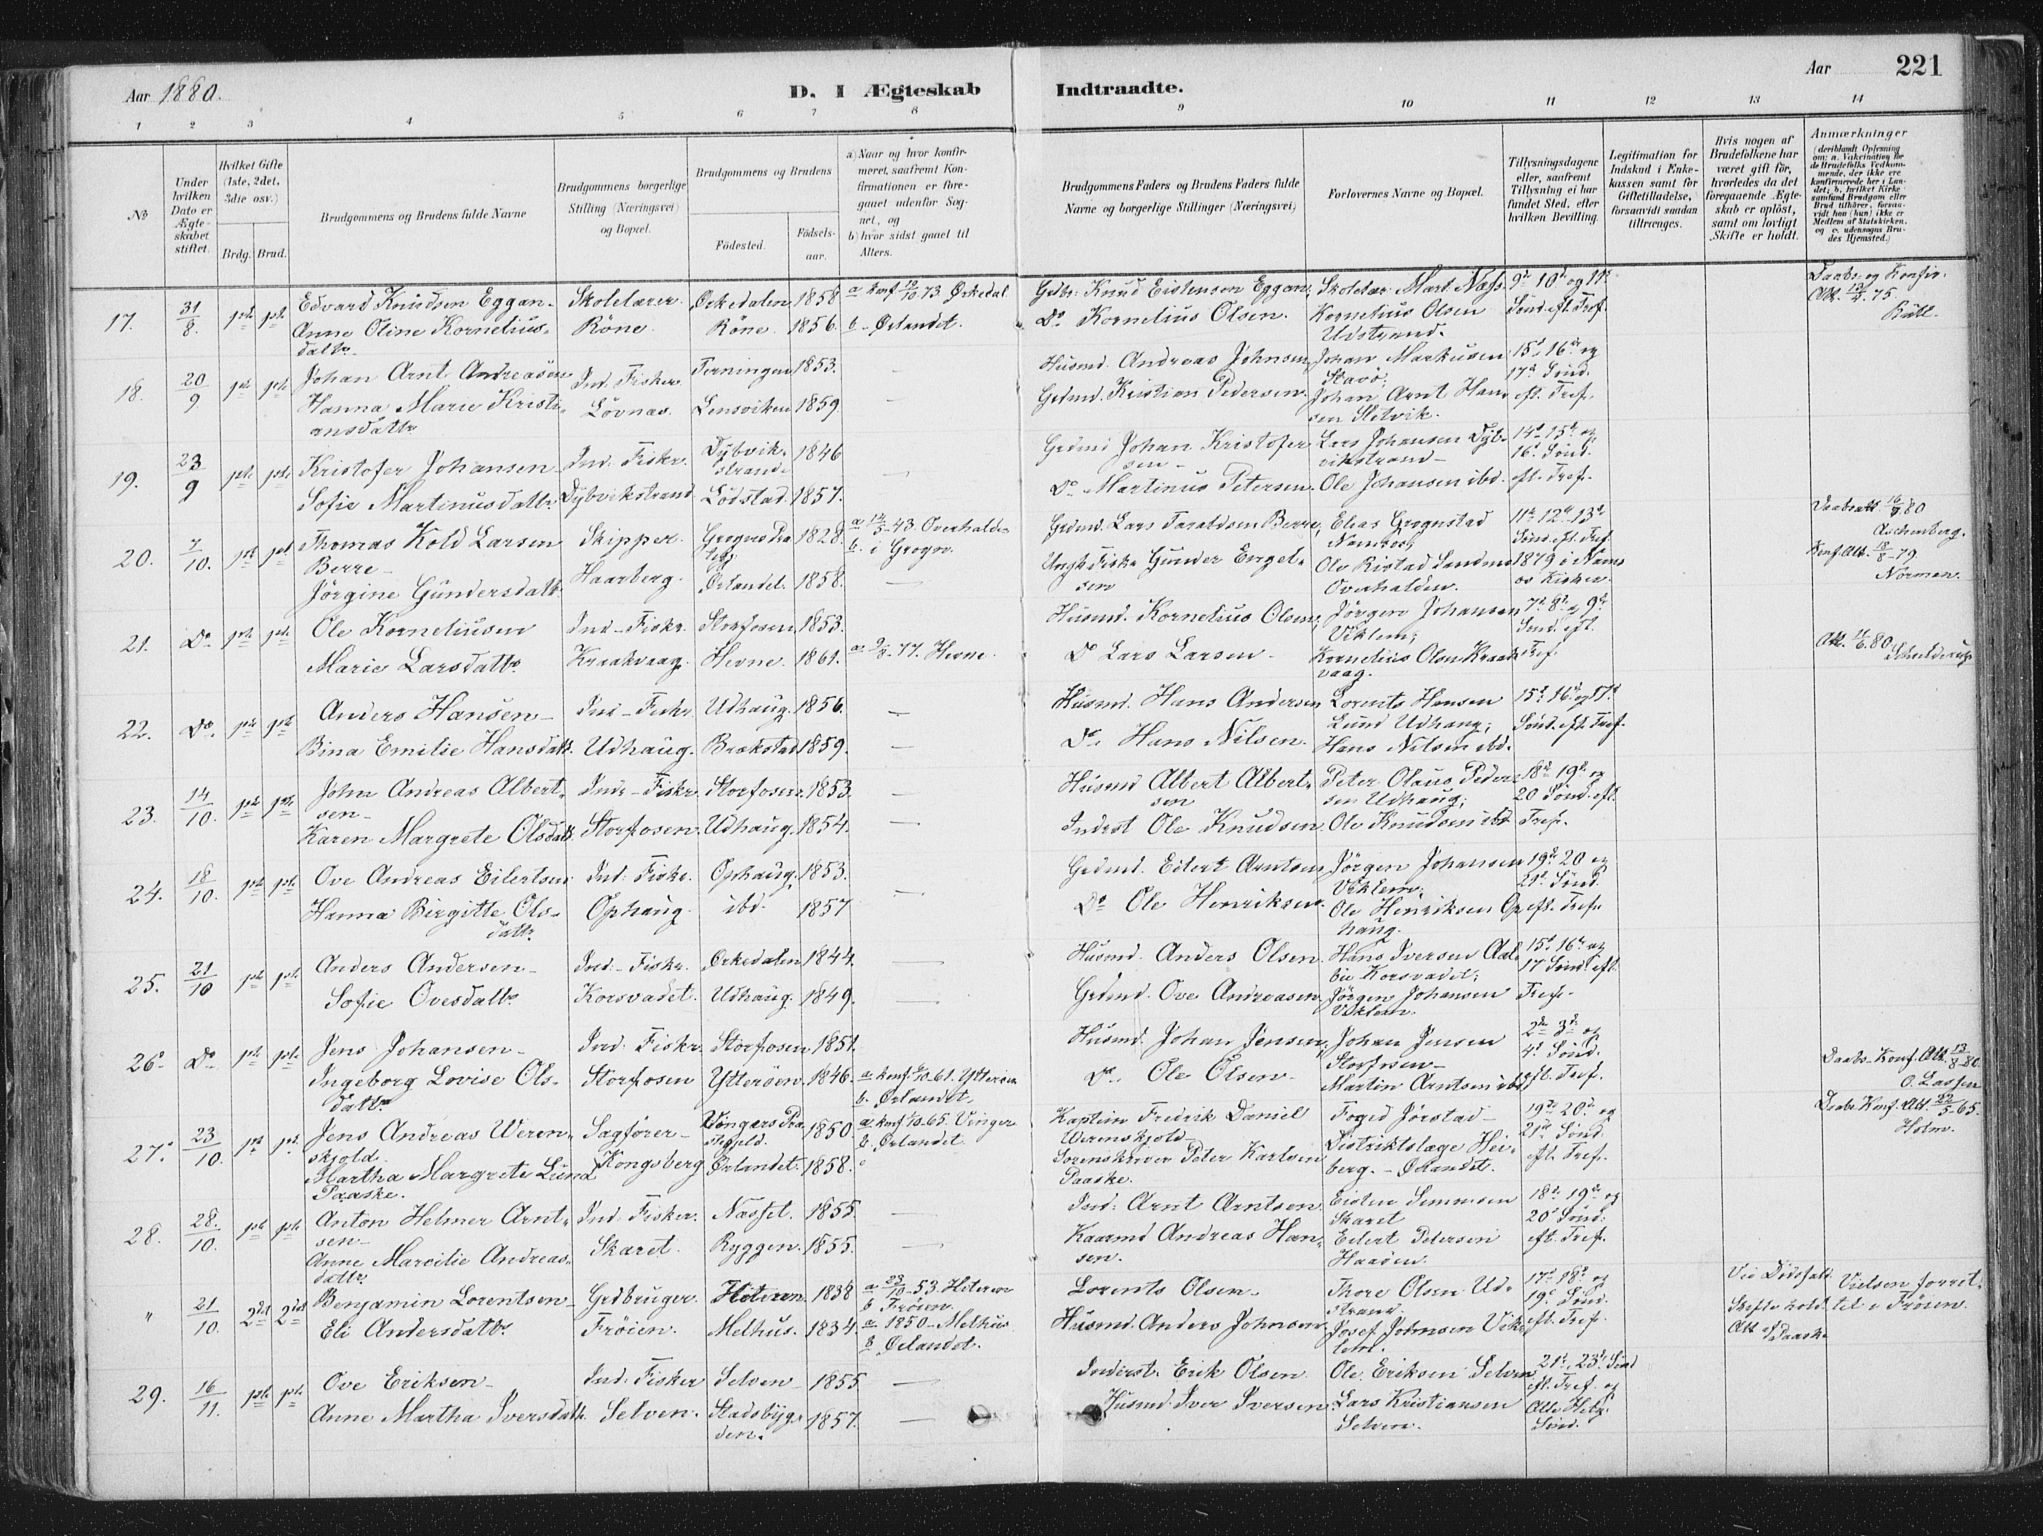 Aar 1880.
D. I Ægteskab
Indtraadte.
Aar
221
1 2 3 4 5 6 7 8 9 10 11 12 13 14
No
Under hvilken Dato er Ægteskabet stiftet.
Hvilket Gifte (1ste, 2det, 3die osv.)
Brdg. Brud.
Brudgommens og Brudens fulde Navne
Brudgommens borgerlige Stilling (Næringsvei) og Bopæl.
Brudgommens og Brudens
Fødested.
Fødselsaar.
a) Naar og hvor konfirmeret, saafremt Konfirmationen er foregaaet udenfor Sognet, og
b) hvor sidst gaaet til Alters.
Brudgommens Faders og Brudens Faders fulde Navne og borgerlige Stillinger (Næringsvei)
Forlovernes Navne og Bopæl.
Tillysningsdagene eller, saafremt Tillysning ei har fundet Sted, efter hvilken Bevilling.
Legitimation for Indskud i Enkekassen samt for Giftetilladelse, forsaavidt saadan tiltrænges.
Hvis nogen af Brudefolkene har været gift før, hvorledes da det foregaaende Ægteskab er opløst, samt om lovligt Skifte er holdt.
Anmærkninger
17. 31/8. 1ste 1ste Edvard Knudsen Eggan- Skolelærer Ørkedalen 1858 a konf 12/10 73 Ørkedal Grdbr. Knud Eistensen Eggan, Skolelær. Mart. Næss 9de 10de og 11te Daabs og Konfir.
Anne Oline Kornelius- Röne. Röne 1856. b Ørlandet. Do Kornelius Olsen. Kornelius Olsen Sönd. eft. Tref. Att. 13/3 75
datter Udstrand.
18. 20/9. 1ste 1ste Johan Arnt Andreasen Ind. Fisker Terningen 1853. Husmd. Andreas Johnsen, Johan Markusen 15de 16de og
Hanna Marie Kristi- Lövnæs. Lensviken 1859. Gdmd. Kristian Pedersen. Stavö; 17de Sönd.
ansdatter Johan Arnt Hansen Sletvik. eft. Tref.
19. 23/9 1ste 1ste Kristofer Johansen Ind. Fiskr. Dybvikstrand 1846 Grdmd Johan Kristofersen- Lars Johansen Dybvikstrand- 14de 15de og 16de Sönd.
Sofie Martinusdatter Dybvikstrand Lödstad 1857. Do Martinus Petersen. Ole Johansen ibd. eft. Tref.
20. 7/10. 1ste 1ste Thomas Kold Larsen Skipper 1828. Grdmd. Lars Berre, Elias Grognstad 11te 12te 13de
Berre- Haarberg. Namsos, Sönd. eft. Tref.
Jörgine Gundersdatter Ørlandet 1858. Gunder Engelsen Ole Ristad Overhalden. 1879 i Namsos Kirken
21. Do 1ste 1ste Ole Korneliusen Ind-Fiskr. Storfosen 1853. Husmd. Kornelius Olsen, Jörgen Johansen 7de 8de og 9de
Marie Larsdatter Kraakvaag. Hevne. 1861. 77. Hevne. Do Lars Larsen. Viklem; Sönd. eft.
Kornelius Olsen Kraakvaag. Tref.
22. Do. 1ste 1ste Anders Hansen- Ind-Fiskr Udhaug. 1856. Husmd. Hans Andersen Lorents Hansen 15de 16de og 17de
Bina Emilie Hansdatter Udhaug. Brækstad 1859. Do. Hans Nilsen. Lund Udhaug; Sönd. eft. Tref.
Hans Nilsen ibd.
23. 14/10. 1ste 1ste John Andreas Albert- Ind-Fiskr Storfosen 1853. Husmd Albert Albertsen Peter Olaus Pedersen Udhaug; 18de 19de og
sen-
Karen Margrete Olsdatter Storfosen. Udhaug. 1854. Inderst Ole Knudsen Ole Knudsen ibd 20 Sönd. eft. Tref.
24. 18/10. 1ste 1ste Ove Andreas Eilertsen Ind. Fiskr. Ophaug 1853. Grdmd. Eilert Arntsen, Jörgen Johansen 19de 20 og
Hanna Birgitte Ols- Ophaug. ibd. 1857 Do Ole Henriksen. Viklem; 21de Sönd.
datter Ole Henriksen Ophaug. eft. Tref.
25. 21/10 1ste 1ste Anders Andersen- Ind-Fiskr. Ørkedalen 1844. Husmd. Anders Olsen. Hans Iversen 15de 16de og
Sofie Ovesdatter Korsvadet. Udhaug. 1849. Grdmd. Ove Andreasen Korsvadet; 17 Sönd. eft.
Jörgen Johansen Viklem. Tref.
26. Do 1ste 1ste Jens Johansen- Ind. Fiskr Storfosen 1851. Husmd. Johan Jensen, Johan Jensen 2den 3de og
Ingeborg Lovise Ols- Storfosen Ytteröen. 1846. a konf 61. Ytteröen Do. Ole Olsen. Storfosen- 4de Sönd.
datter b. Ørlandet. Martin Arntsen ibd eft. Tref. Daabs-Konf. Att. 13/8 80.
27. 23/10. 1ste 1ste Jens Andreas Weren- Sagförer- 1850 a konf 65. Vinger Kaptein Fredrik Daniel Foged Jörstad- 19de 20de og Daabs Konf. Att. 22/5 65.
skjold. Kongsberg b. Ørlandet. Werenskjold Distriktslæge Hei- 21de Sönd. Holm.
Martha Margrete Lund Ørlandet 1858. Sorenskriver Peter Karlsen berg.-Ørlandet. eft. Tref.
Paaske. Paaske.
28. 28/10. 1ste 1ste Anton Helmer Arnt- Ind. Fisker. Næsset. 1855 Ind. Arnt Arntsen Eisten Simonsen 18de 19de og
sen- Skaret 20de Sönd.
Anne Marcilie Andreas- Skaret. Ryggen. 1855. Kaarmd Andreas Han- Eilert Petersen eft. Tref.
datter sen.
" 21/10. 2det 2det Benjamin Lorentsen Grdbruger Hiteren 1838 a 23/10 53. Hiteren Lorents Olsen- Thore Olsen Ud- 17de 18de og Ved Dödsfald Vielsen forret-
b Fröien. strand. 19de Sönd. Skifte holdt tet i Fröien.
Eli Andersdatter Fröien. Melhus. 1834. a 1850 Melhus Husmd. Anders Johnsen Josef Johnsen Viklem. eft. Tref. Att Paaske
b Ørlandet.
29. 16/11. 1ste 1ste Ove Eriksen- Ind. Fisker Selven- 1855 Inderst. Erik Olsen Ole Eriksen Selven 21de, 23de Sönd
Anne Martha Iversdatter Selven. Stadsbygden. 1857. Husmd. Iver Iversen. Lars Kristiansen eft. Tref. og
Selven. Alle Helg. Sönd.